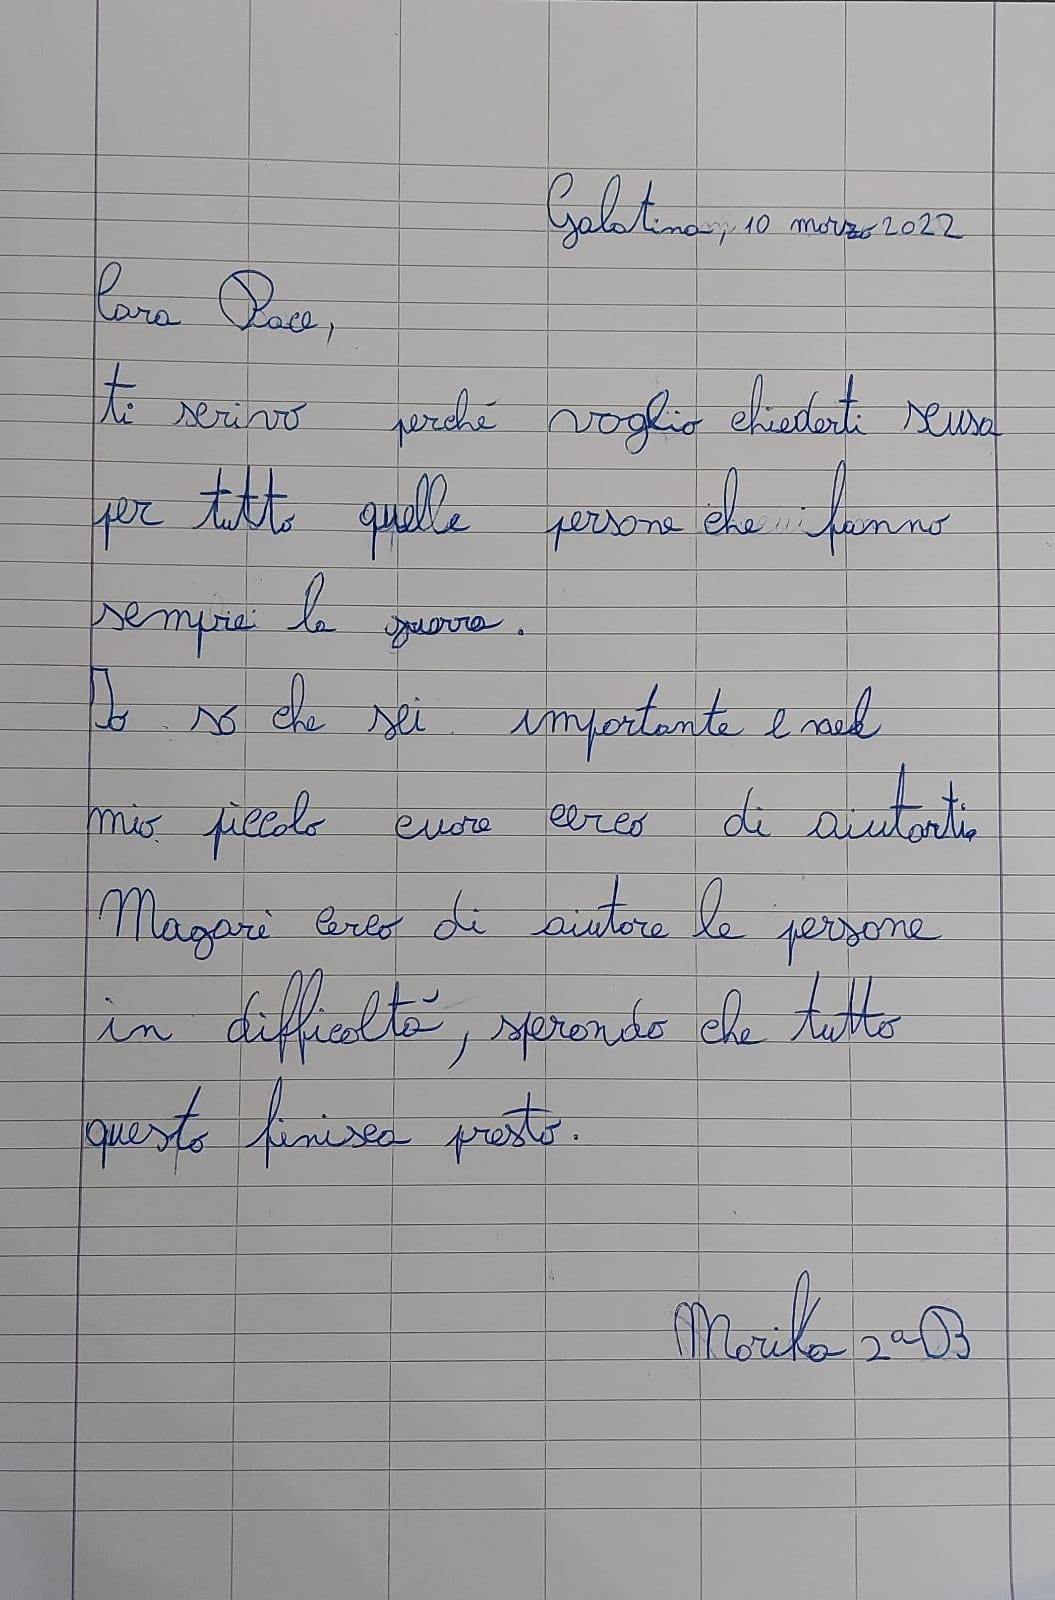 Galatina, 10 marzo 2022
Cara Pace,
ti scrivo perché voglio chiederti scusa
per tutto quelle persone che fanno
sempre la guerra.
Io so che sei importante e nel
mio piccolo cuore cerco di aiutarti.
Magari cerco di aiutare le persone
in difficoltà, sperando che tutto
questo finisca presto.
Marika 2ªB